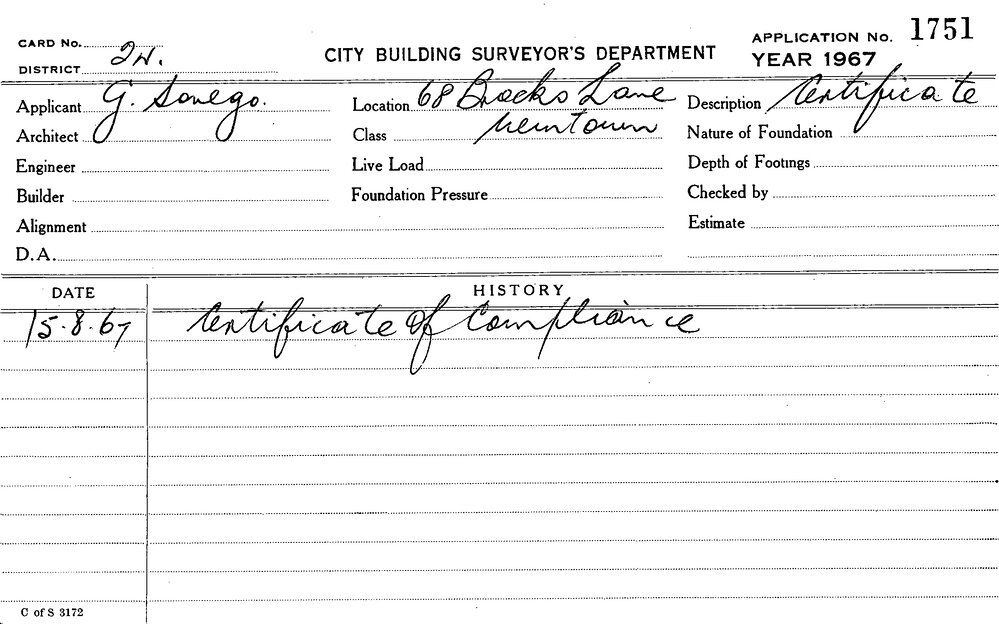 CARD No.
DISTRICT 2W.
CITY BUILDING SURVEYOR'S DEPARTMENT
APPLICATION No. 1751
YEAR 1967
Applicant G. Sonego. Location 68 Brocks Lane Description Certificate
Architect Class Newtown Nature of Foundation
Engineer Live Load Depth of Footings
Builder Foundation Pressure Checked by
Alignment Estimate
D.A.
DATE HISTORY
15.8.67 Certificate of Compliance
C of S 3172